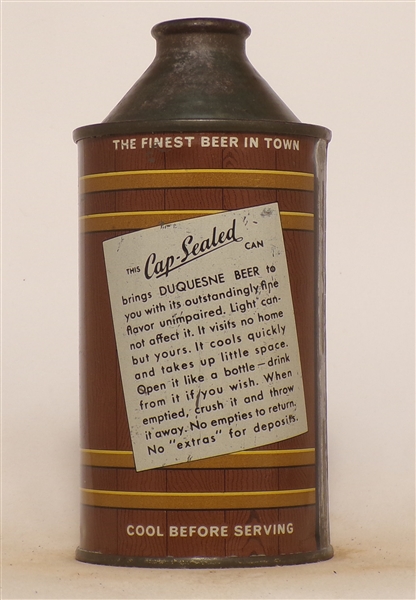 THE FINEST BEER IN TOWN
THIS Cap-Sealed CAN
brings DUQUESNE BEER to
you with its outstandingly fine
flavor unimpaired. Light can-
not affect it. It visits no home
but yours. It cools quickly
and takes up little space.
Open it like a bottle—drink
from it if you wish. When
emptied, crush it and throw
it away. No empties to return,
No "extras" for deposits.
COOL BEFORE SERVING